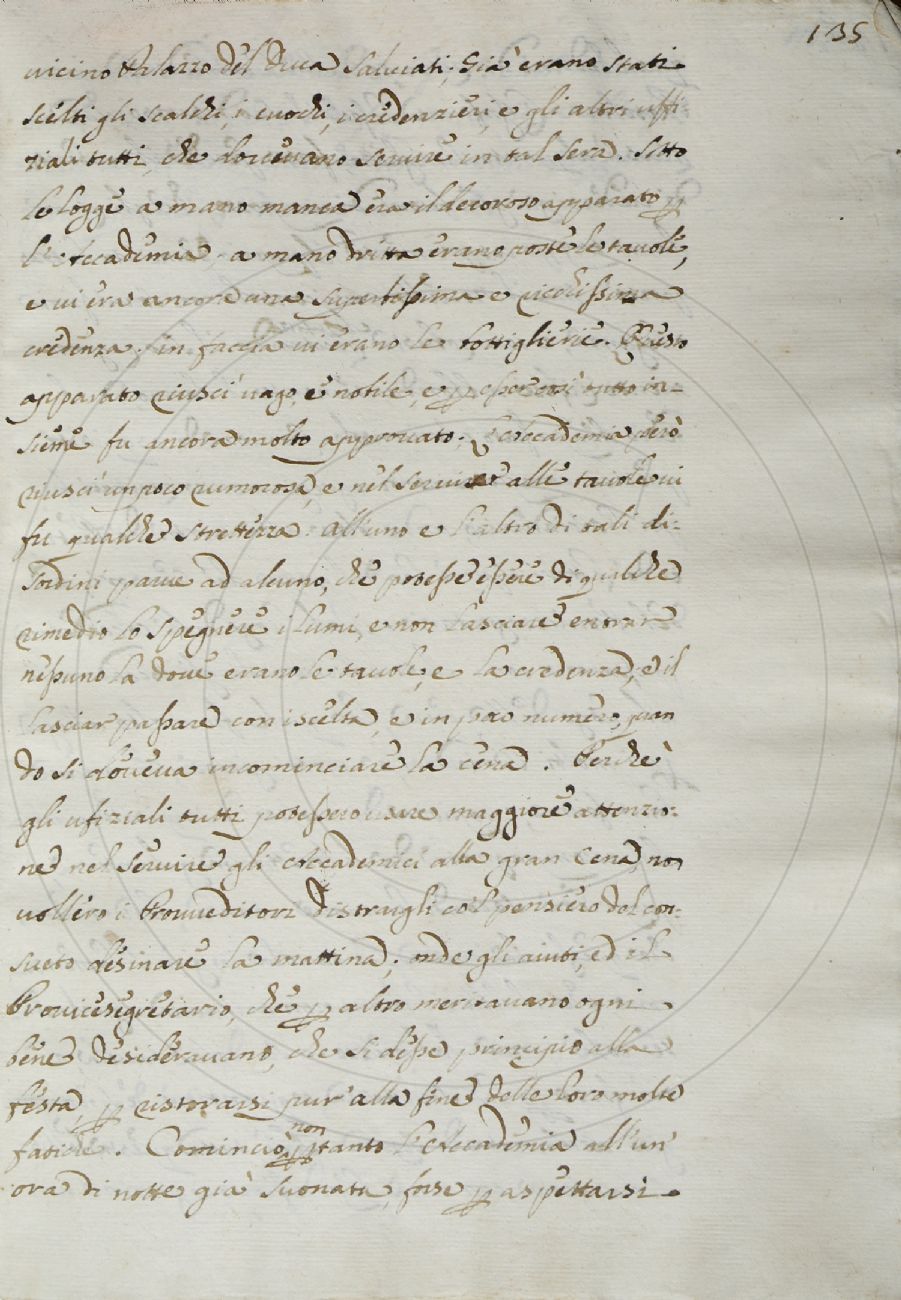 135
vicino Palazzo del Duca Salviati. Già erano stati
scelti gli scalchi, i cuochi, i credenzieri, e gli altri uffi-
ziali tutti, che dovevano servire in tal sera. Sotto
le logge a mano manca era il decoroso apparato p
l'Accademia a mano dritta erano poste le tavole,
e vi era ancora una superbissima e ricchissima
credenza, in faccia vi erano le bottiglierie. Questo
apparato riuscì vago, e nobile, e p esser così tutto in-
sieme fu ancora molto approvato. L'Accademia però
riuscì un poco rumorosa, e nel servire alle tavole vi
fu qualche strettezza. All'uno e l'altro di tali di-
sordini parve ad alcuno, che potesse essere di qualche
rimedio lo spegnere i lumi, e non lasciare entrar
nessuno la dove erano le tavole, e la credenza, e il
lasciar passare con iscelta, e in poco numero, quan
do si doveva incominciare la cena. Perchè
gli ufiziali tutti potessero usare maggiore attenzio-
ne nel servire gli Accademici alla gran Cena, non
vollero i Provveditori distraigli col pensiero del con-
sueto desinare la mattina; onde gli aiuti, ed il
Provicesegretario, che p altro meritavano ogni
bene desideravano, che si desse principio alla
festa, p ristorarsi pur' alla fine delle loro molte
fatiche. Cominciò non p tanto l'Accademia all'un'
ora di notte già suonata, forse p aspettarsi